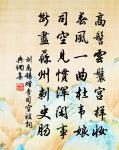 高髻雲鬟宮樣妝
春風一曲杜韋娘
司空見慣渾閒事
斷盡蘇州刺史腸
劉禹錫贈李司空妓